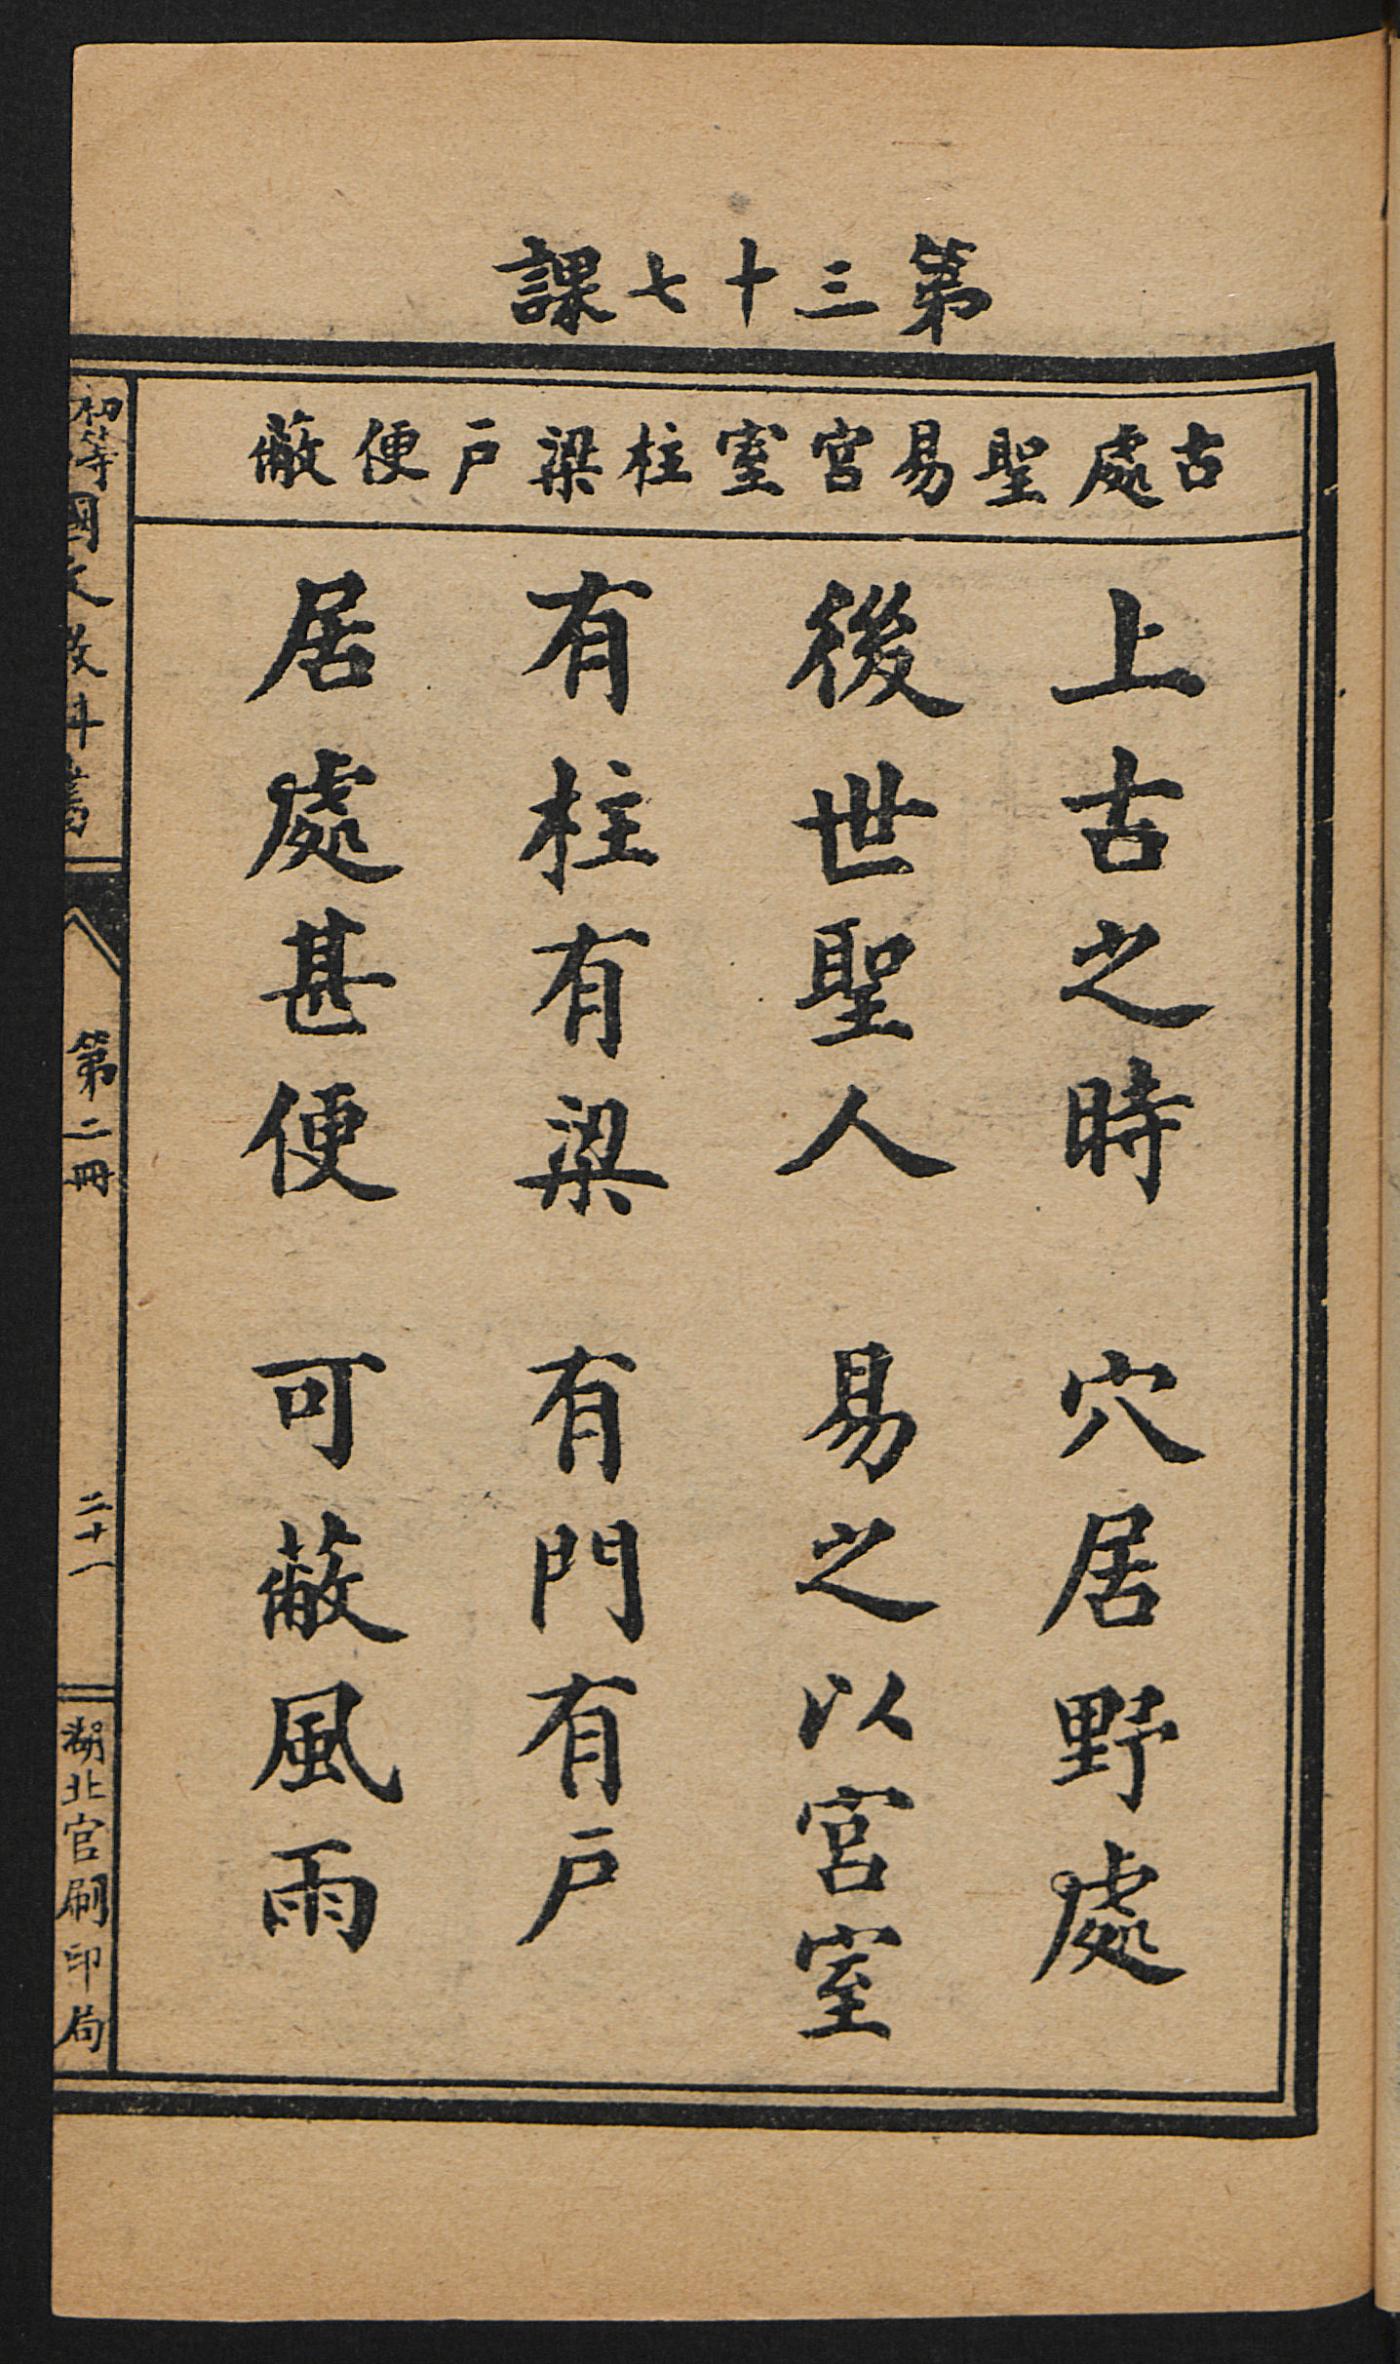 第三十七課
古處聖易宮室柱梁戶便蔽
上古之時　穴居野處
後世聖人　易之以宮室
有柱有梁　有門有戶
居處甚便　可蔽風雨
初等國文教科書
第二冊
二十一
湖北官刷印局